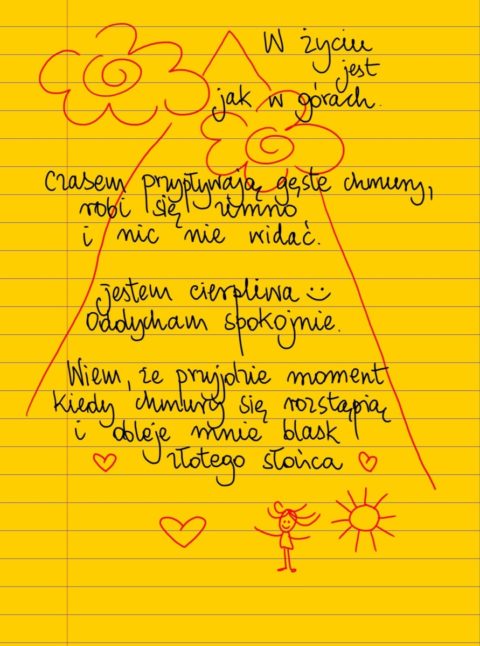 W życiu
jest
jak w górach.
Czasem przypływają gęste chmury,
robi się zimno
i nic nie widać.
jestem cierpliwa :)
Oddycham spokojnie.
Wiem, że przyjdzie moment
kiedy chmury się rozstąpią
i obleje mnie blask
złotego słońca